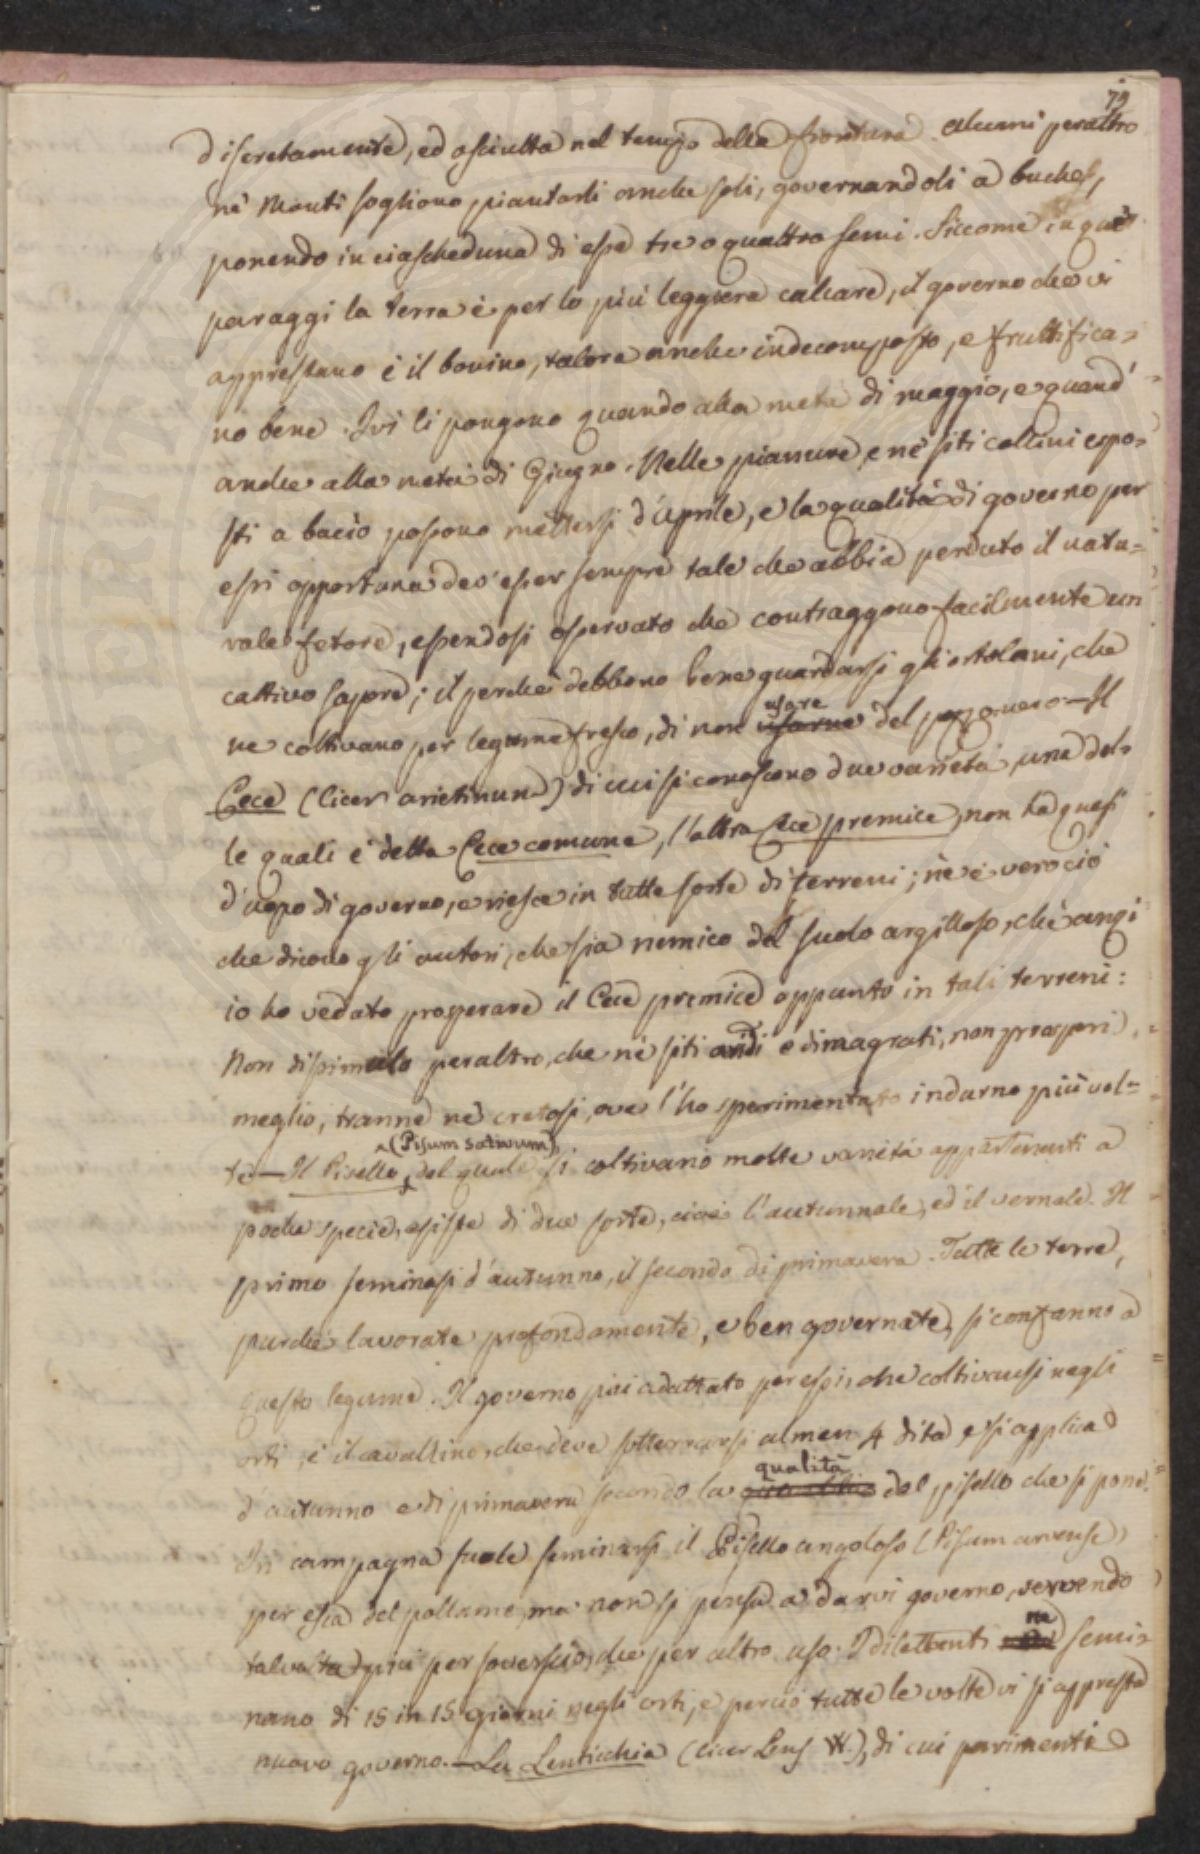 79
discretamente, ed asciutta nel tempo della fioritura. Alcuni peraltro
ne' Monti sogliono piantarli anche soli, governandoli a buche,
ponendo in ciascheduna di esse tre o quattro semi. Siccome in que'
paraggi la terra è per lo più leggiera calcare, il governo che vi
apprestano è il bovino, talora anche indecomposto, e fruttifica=
no bene. Ivi li pongono quando alla metà di maggio, e quand'
anche alla metà di Giugno. Nelle pianure, e ne' siti collini espo=
sti a bacìo possono mettersi d'Aprile, e la qualità di governo per
essi opportuna dev'esser sempre tale che abbia perduto il natu=
rale fetore, essendosi osservato che contraggono facilmente un
cattivo sapore; il perchè debbono bene guardarsi gli ortolani, che
usare
ne coltivano per legume fresco, di non usarne del pozzonero. — Il
Cece (Cicer arietinum) di cui si conoscono due varietà, una del=
le quali è detta Cece comune, l'altra Cece premice, non ha quasi
d'uopo di governo, e riesce in tutte sorte di terreni; nè è vero ciò
che dicono gli autori, che sia nemico del suolo argilloso, chè anzi
io ho veduto prosperare il Cece premice appunto in tali terreni:
Non dissimulo peraltro, che ne' siti aridi e dimagrati, non prosperi
meglio, tranne ne' cretosi, ove l'ho sperimentato indarno più vol=
(Pisum sativum),
te. — Il Pisello, del quale si coltivano molte varietà appartenenti a
poche specie, esiste di due sorte, cioè l'autunnale, ed il vernale. Il
primo seminasi d'autunno, il secondo di primavera. Tutte le terre,
purchè lavorate profondamente, e ben governate, si confanno a
questo legume. Il governo più adattato per essi, che coltivansi negli
orti, è il cavallino, che deve sotterrarsi almen 4 dita, e si applica
qualità
d'autunno e di primavera secondo la del pisello che si pone.
In campagna suole seminarsi il Pisello angoloso (Pisum arvense)
per esca del pollame, ma non si pensa a darvi governo, servendo
ne
talvolta più per soverscio, che per altro uso. I dilettanti semi=
nano di 15 in 15 giorni negli orti, e perciò tutte le volte vi si appresta
nuovo governo. — La Lenticchia (Cicer Lens W.), di cui parimenti